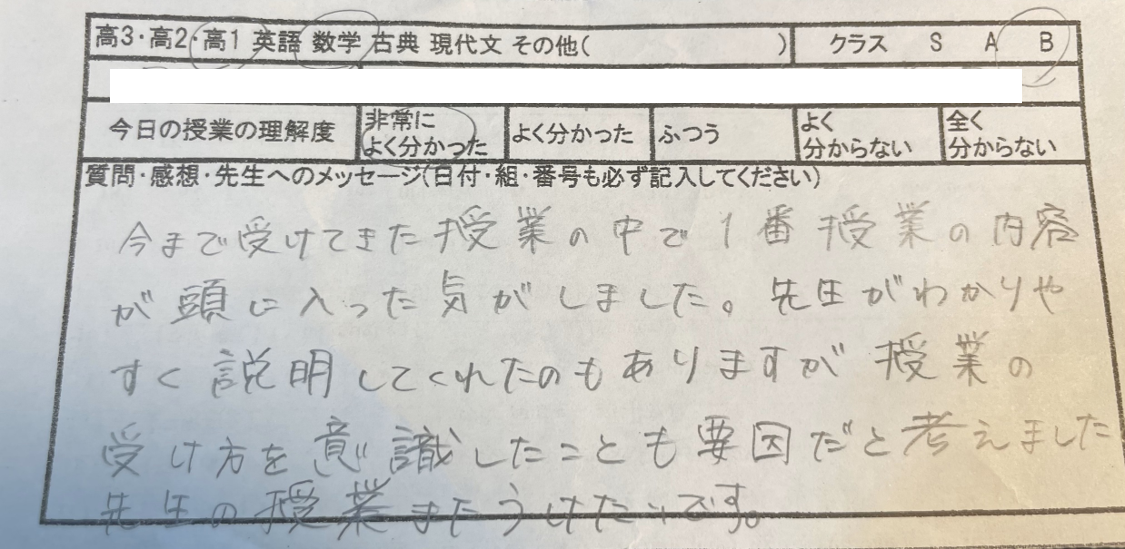 高3・高2・高1 英語 数学 古典 現代文 その他( ) クラス S A B
今日の授業の理解度 非常によく分かった よく分かった ふつう よく分からない 全く分からない
質問・感想・先生へのメッセージ(日付・組・番号も必ず記入してください)
今まで受けてきた授業の中で1番授業の内容
が頭に入った気がしました。先生がわかりや
すく説明してくれたのもありますが授業の
受け方を意識したことも要因だと考えました
先生の授業またうけたいです。